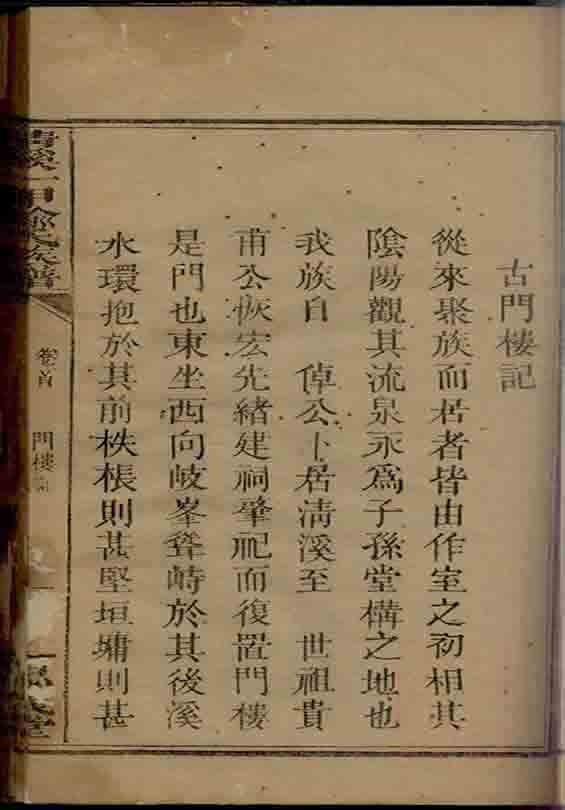 古門樓記
從來聚族而居者皆由作室之初相其
陰陽觀其流泉永爲子孫堂構之地也
我族自 倬公卜居清溪至 世祖貴
甫公恢宏先緒建祠肇祀而復置門樓
是門也東坐西向岐峯聳峙於其後溪
水環抱於其前栋棖則甚堅垣墉則甚
清溪一甲鄭氏族譜
卷首
門樓記